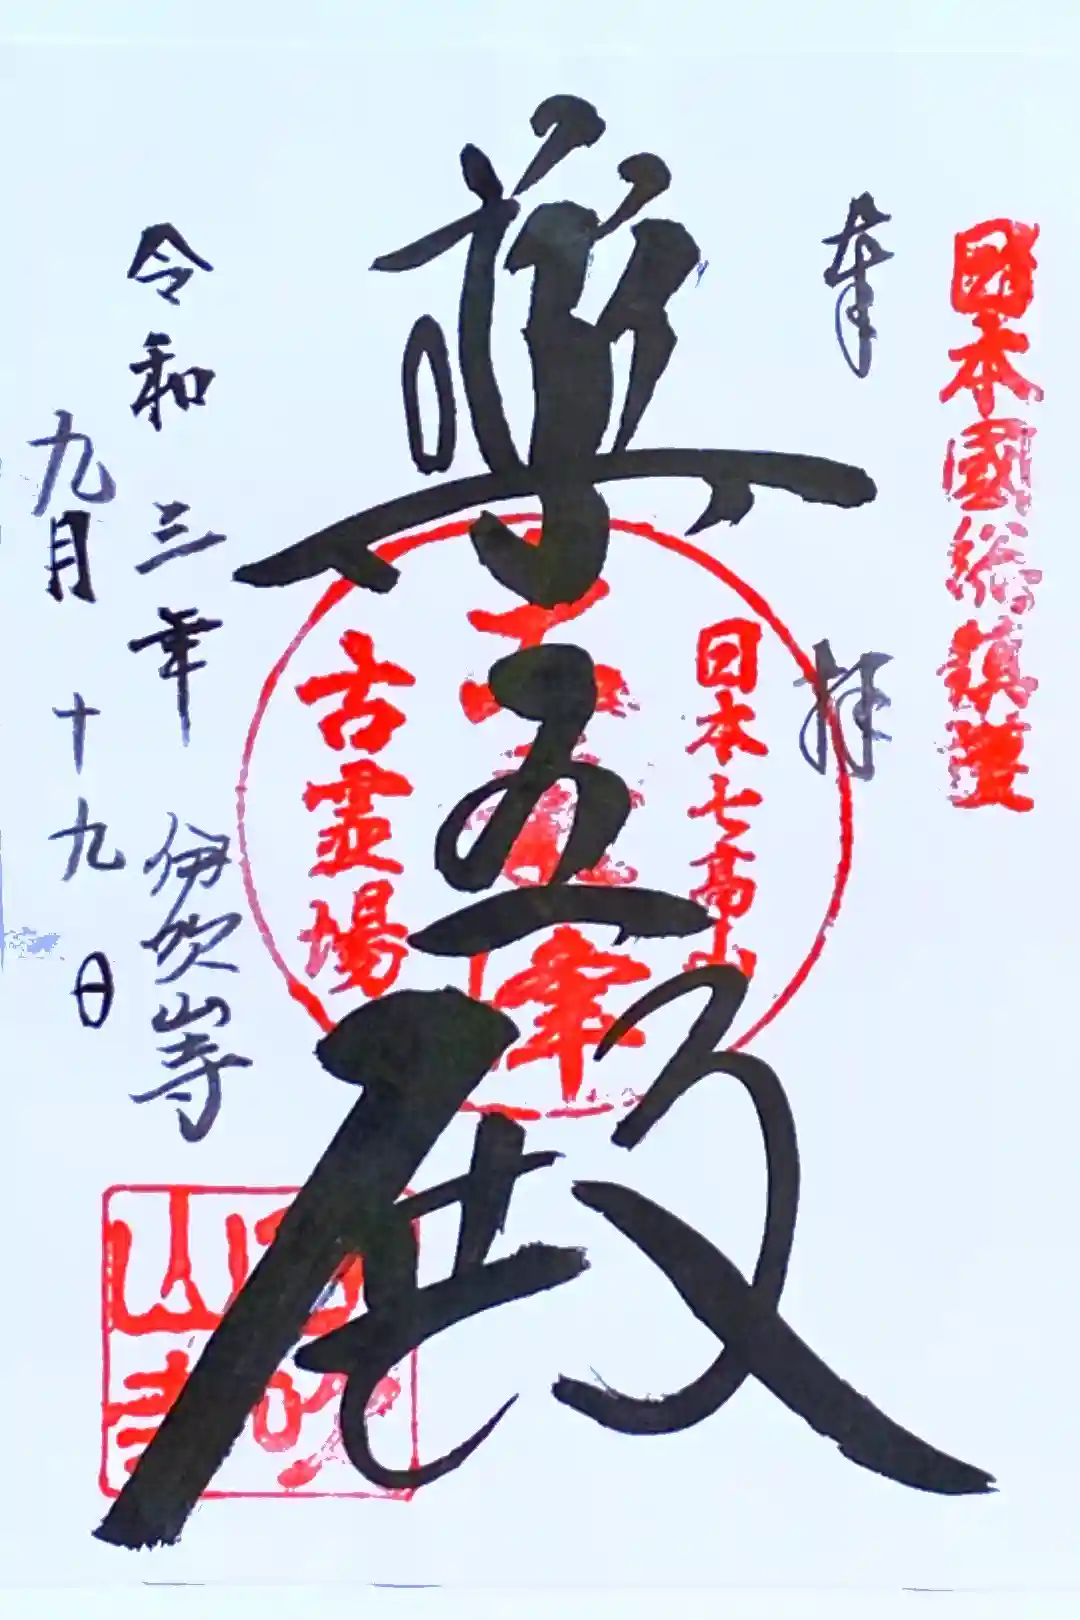 日本國総鎮
奉拝
日本七高山
薬 殿
峯
古霊場
令和三年
九月十九日
伊吹山寺
伊吹山寺